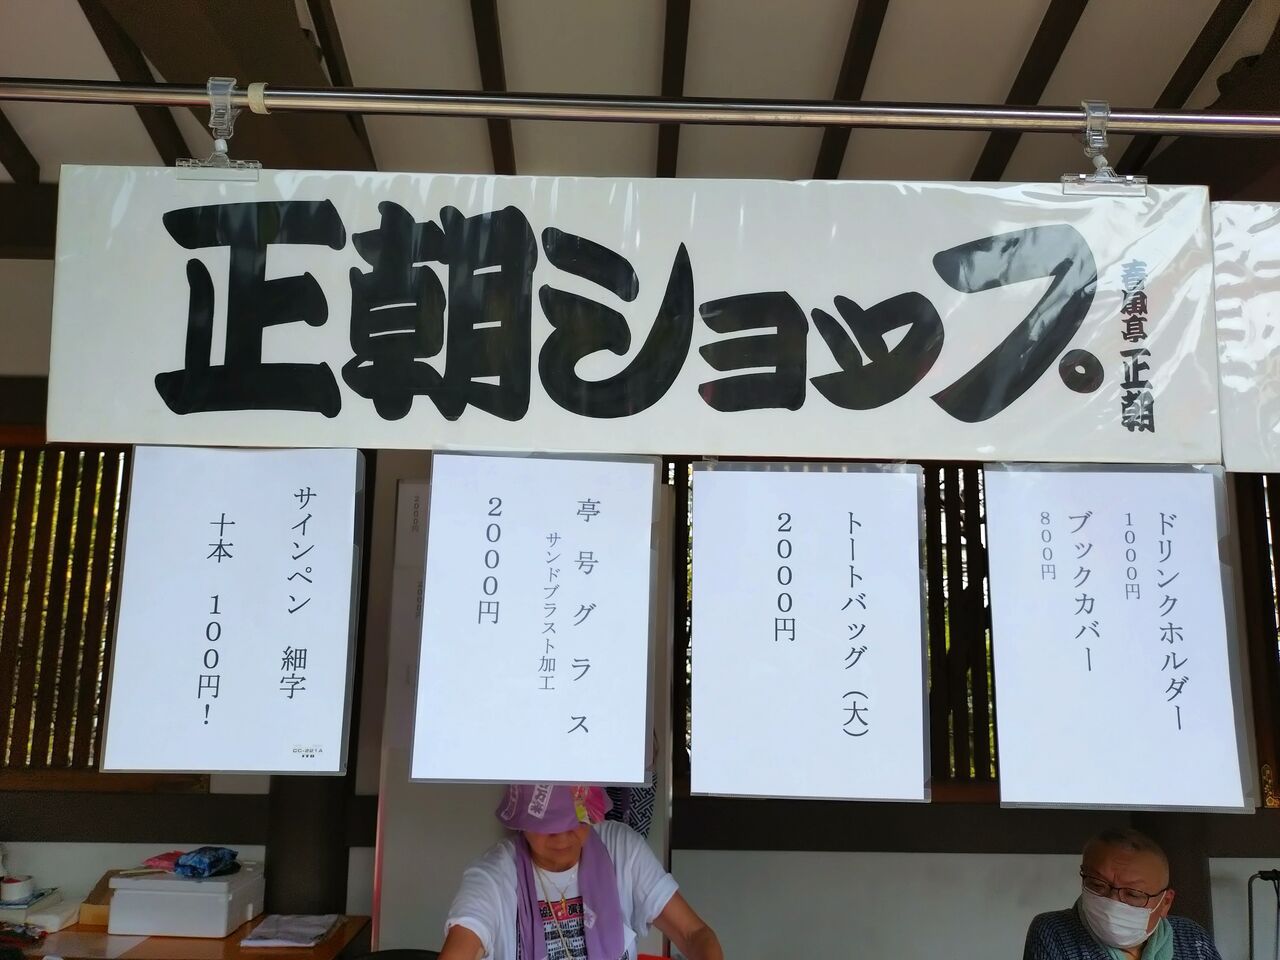 正朝ショップ。
春風亭正朝
ドリンクホルダー
1000円
ブックカバー
800円
トートバッグ（大）
2000円
亭号グラス
サンドブラスト加工
2000円
サインペン 細字
十本 100円！
CC-221A
2000円
2000円